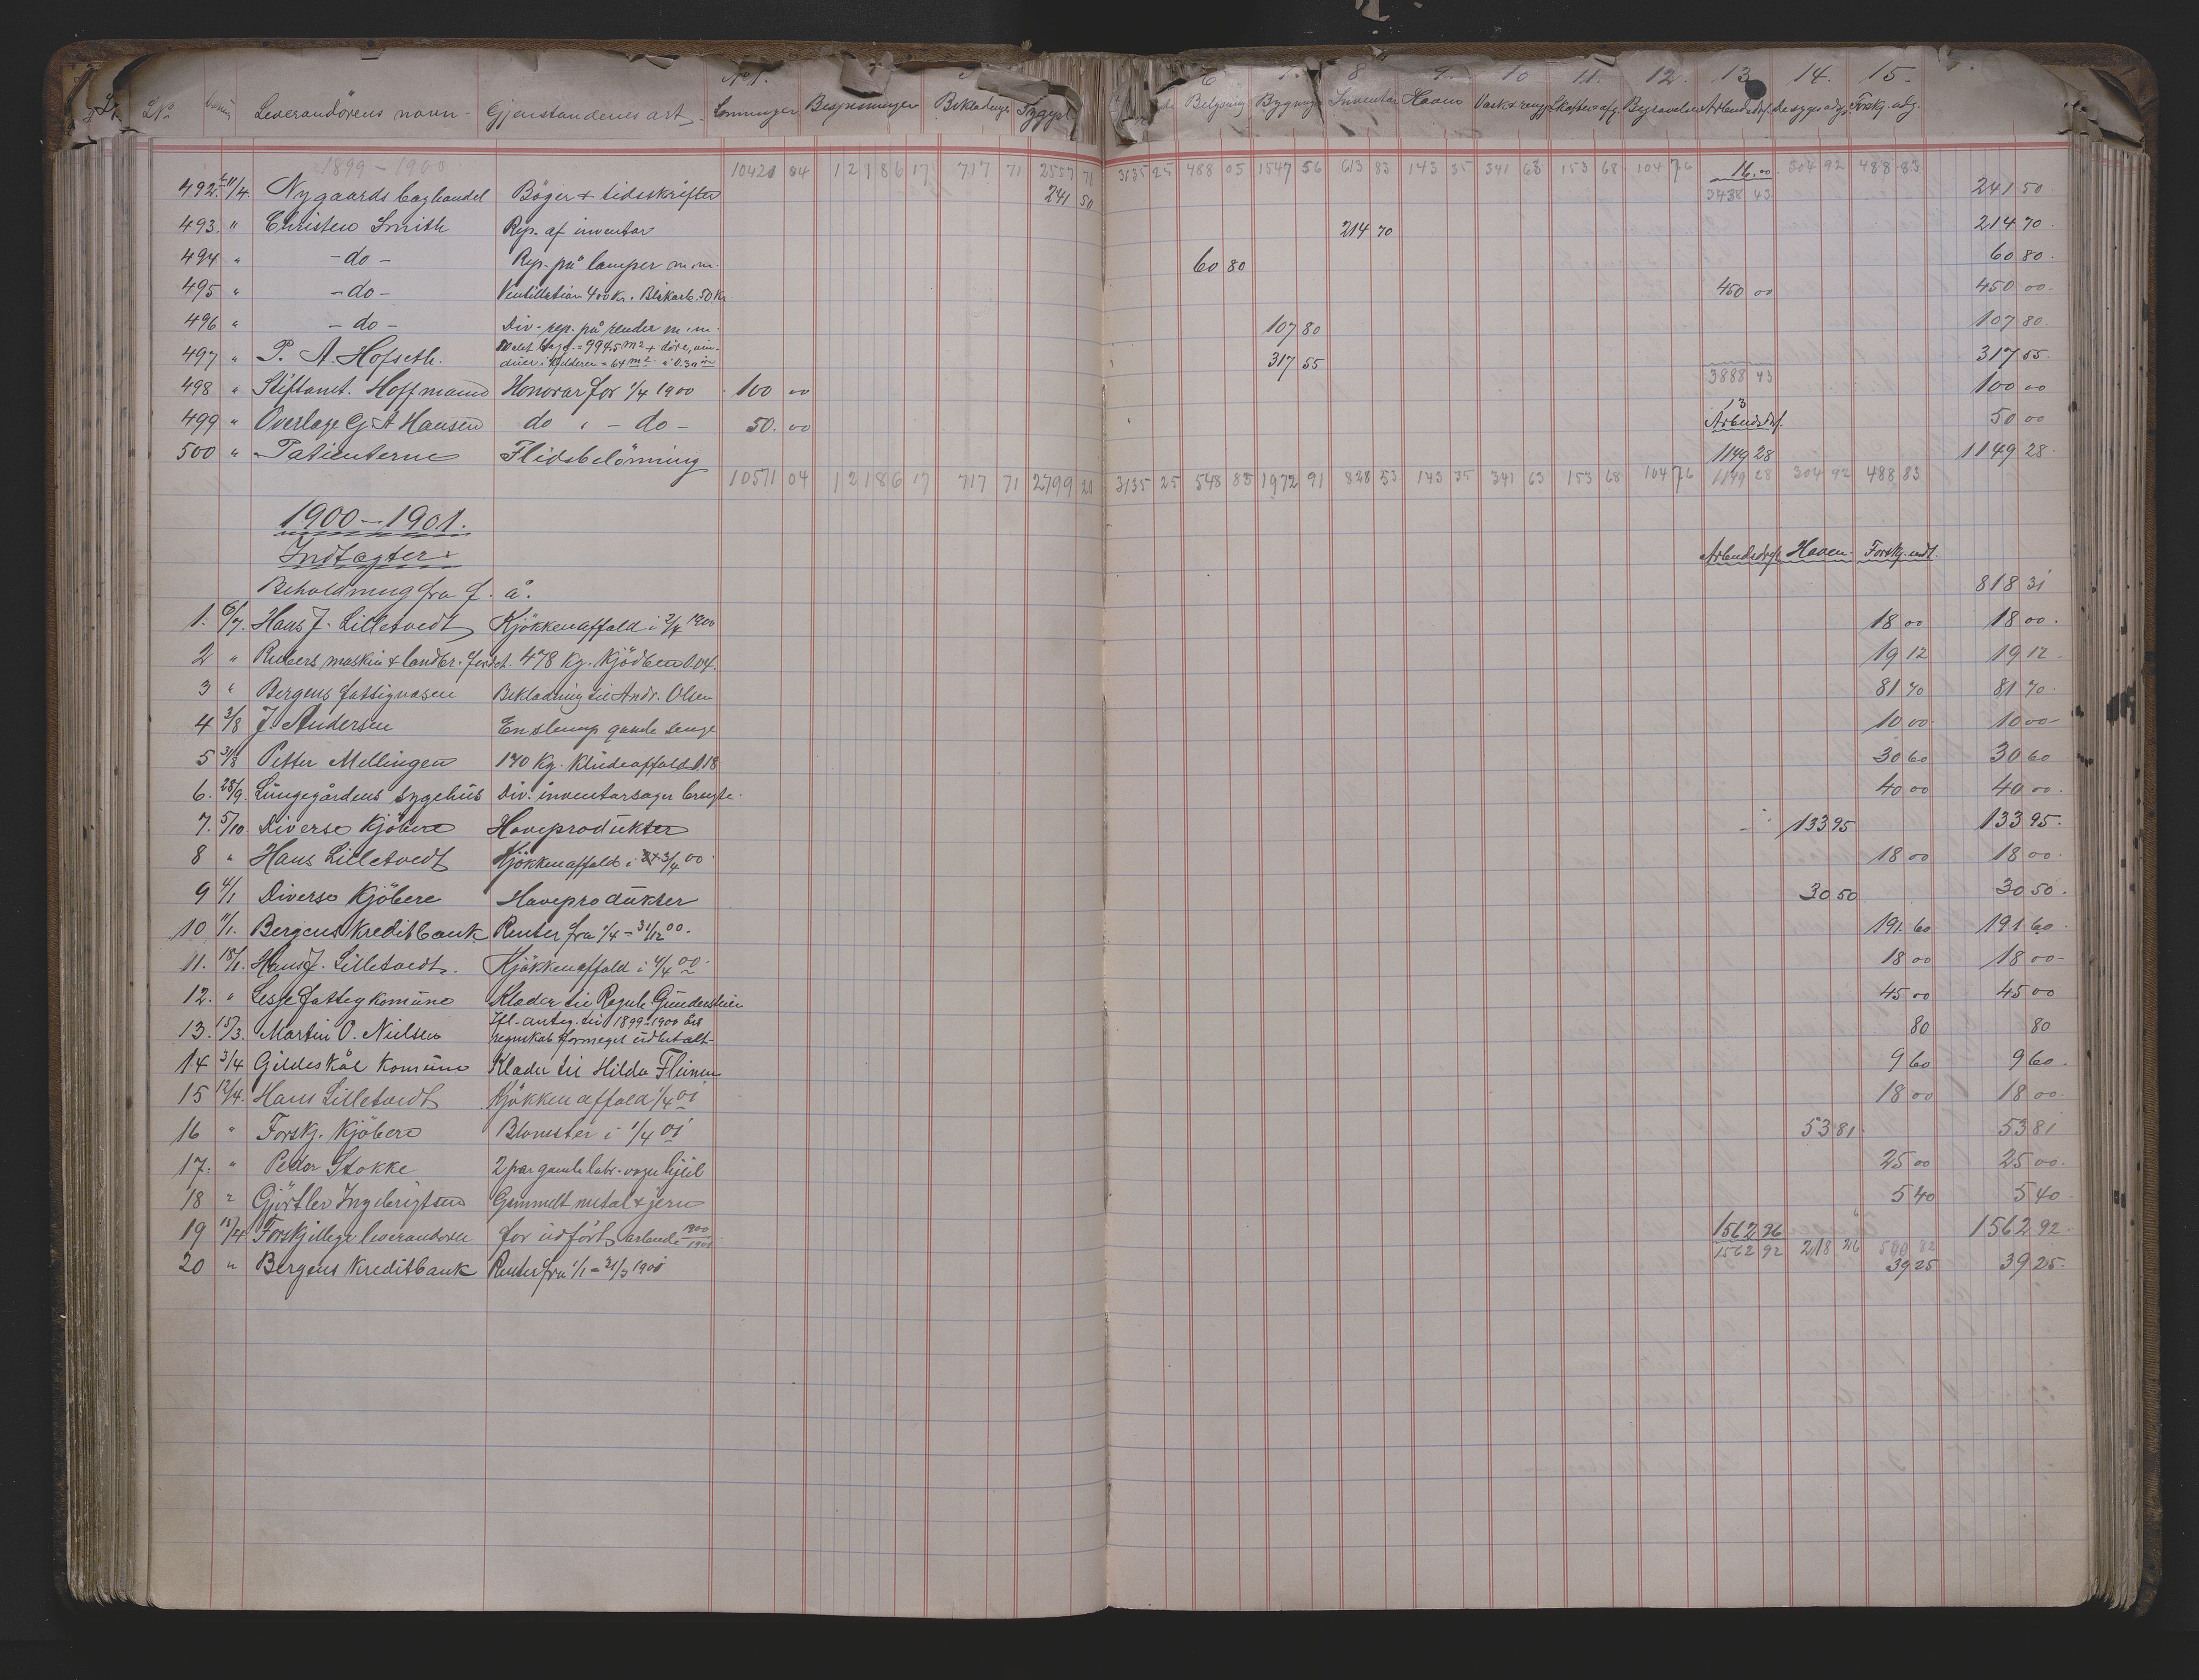 No 1. 6 7. 8 9. 10 11. 12. 13 14. 15.
L No. Leverandörens navn Gjenstandenes art Lönninger Bespisningen Beklædninger Sygepl. Belysning Bygning Inventar Haven Vask & rengj. Skatter & afg. Begravelser Arbeidsdr. Forskj. udg.
1899-1900 10421 04 12186 17 717 71 2557 71 3135 25 488 05 1547 56 613 83 143 35 341 63 153 68 104 76 16.00 304 92 488 83
492 11/4 Nygaards boghandel Böger & tidsskrifter 241 50 3438 43 241 50
493 " Christen Smith Rep. af inventar 214 70 214 70
494 " -do- Rep. på lamper m.m. 60 80 60 80
495 " -do- Ventillation 400 Kr. Blikarb. 50 Kr. 450 00 450 00
496 " -do- Div. rep. på render m.m. 107 80 107 80
497 " P. A. Hofseth. Malet = 994.5 m2 + döre, vin-
duer i kjelderen = 64 m2 à 0.30 317 55 3888 43 317 55
498 " Stiftamt. Hoffmann Honorar for 1/4 1900 100 00 100 00
499 " Overlæge G. A. Hansen do - do - 50.00 13 Arbeidsdr. 50 00
500 " Patienterne Flidsbelönning 1149 28 1149 28
10571 04 12186 17 717 71 2799 21 3135 25 548 85 1972 91 828 53 143 35 341 63 153 68 104 76 1149 28 304 92 488 83
1900-1901.
Indtægter. Arbeidsdr. Haven. Forskj. indt.
Beholdning fra f. å. 818 31
1. 6/7. Hans J. Lilletvedt Kjökkenaffald i 2/4 1900 18 00 18 00
2 " Rubers maskin & landbr. forret. 478 Kg. Kjödben 0.04. 19 12 19 12
3 " Bergens fattigvæsen Beklædning til Andr. Olsen 81 70 81 70
4 3/8 J. Andersen En slump gamle senge 10 00 10 00
5 31/8 Petter Mellingen 170 Kg. Kludeaffald 0.18 30 60 30 60
6. 28/9. Lungegårdens sygehus Div. inventarsager brugte. 40 00 40 00
7. 5/10. Diverse Kjöbere Haveprodukter 133 95 133 95
8 " Hans Lilletvedt Kjökkenaffald i 3/4 00 18 00 18 00
9 4/1 Diverse Kjöbere Haveprodukter 30 50 30 50
10 11/1. Bergens Kreditbank Renter fra 1/4 - 31/12 00. 191.60 191 60
11. 18/1. Hans J. Lilletvedt. Kjökkenaffald i 4/4 00 18 00 18 00
12. " Lesje fattigkomune Klæder til 45 00 45 00
13. 15/3. Martin O. Nielsen Ifl. anteg. til 1899-1900 års
regnskab formeget udbetalt 80 80
14 3/4 Gildeskål Komune Klæder til Hilda 9 60 9 60
15 12/4. Hans Lilletvedt Kjökkenaffald 1/4 01 18 00 18 00
16 " Forskj. Kjöbere Blomster i 1/4 01 53 81 53 81
17. " Peder Stokke 2 par gamle vogn hjul 25 00 25 00
18 " Gjörtler Ingebrigtsen Gammelt metal & jern 5 40 5 40
19 18/4 Forskjellige leverandörer for udfört arbeide 1900/1901 1562 96 1562 92
1562 92 218 26 590 82
20 " Bergens Kreditbank Renter fra 1/1 - 31/3 1901 39 25 39 25